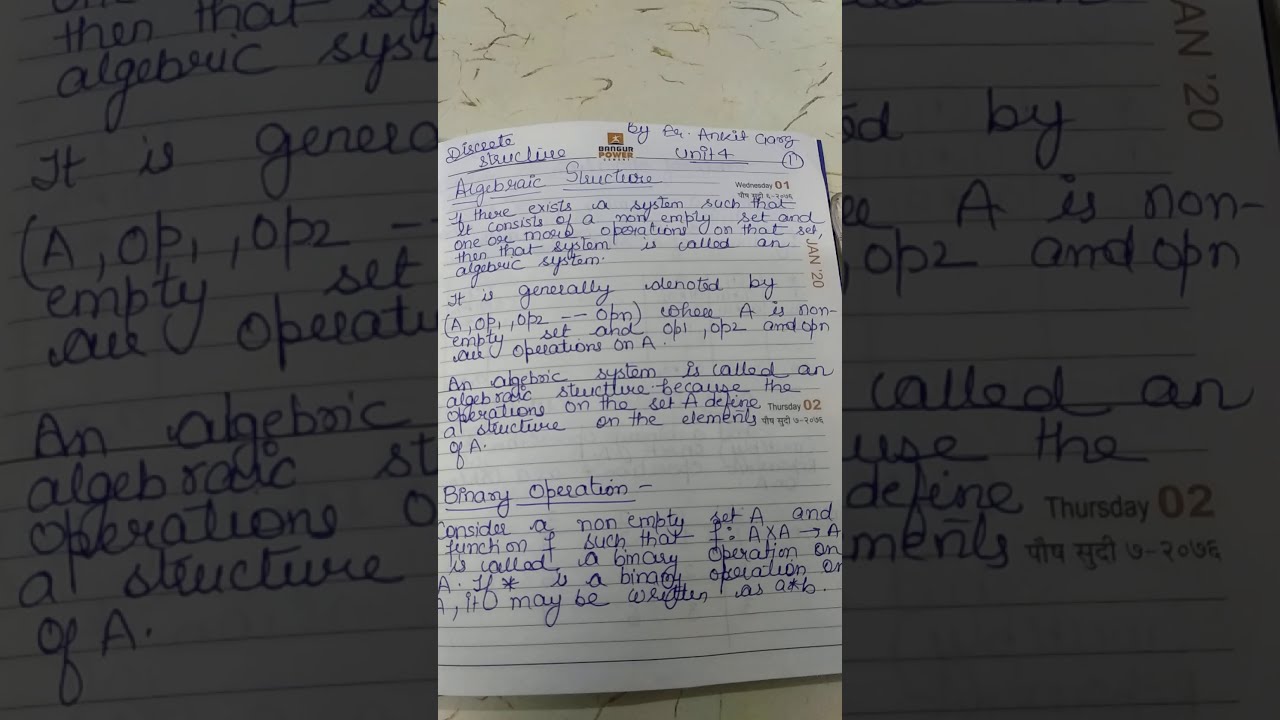 by Er. Ankit Garg
Discrete structure
BANGUR POWER CEMENT
Unit 4
1
Algebraic Structure
Wednesday 01
पौष सुदी ६-२०७६
If there exists a system such that
It consists of a non empty set and
one or more operations on that set,
then that system is called an
algebric system.
JAN '20
It is generally denoted by
(A, op1, op2 --- opn) where A is non-
empty set and op1, op2 and opn
are operations on A.
An algebric system is called an
algebraic structure because the
operations on the set A define
Thursday 02
a structure on the elements
पौष सुदी ७-२०७६
of A.
Binary Operation -
Consider a non empty set A and
function f such that f: AXA → A
is called a binary operation on
A. If * is a binary operation on
A, it may be written as a*b.